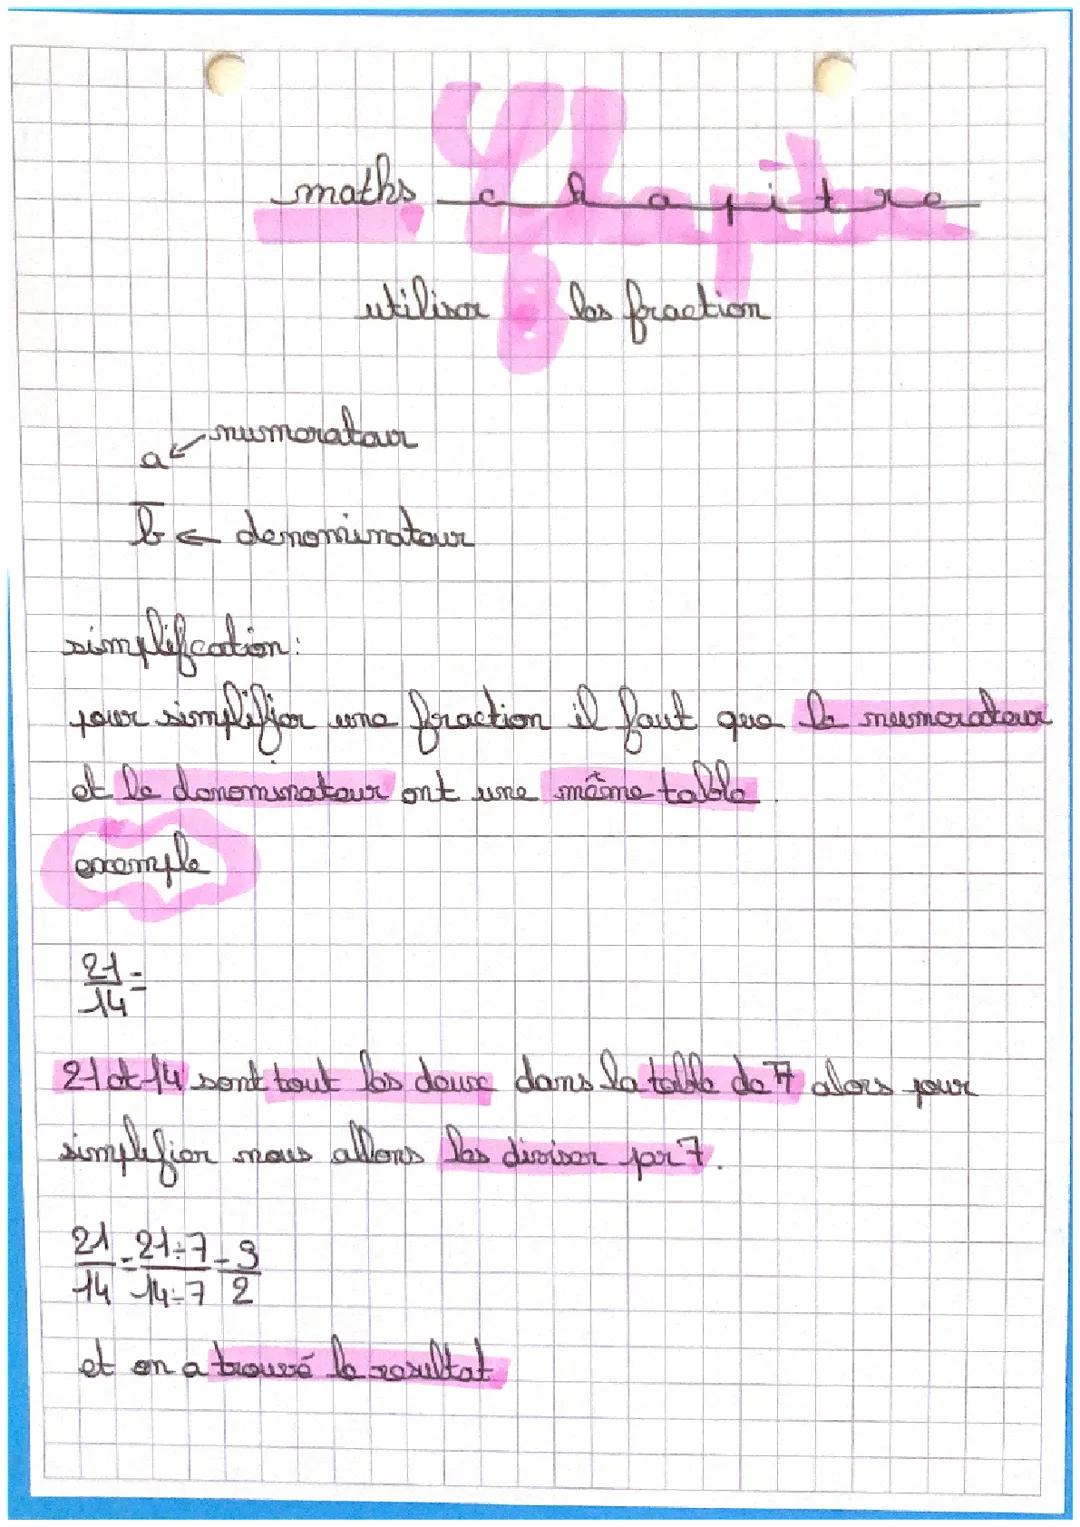 maths chapitre
utiliser les fraction
a ← numerateur
b ← denominateur
simplifcation:
pour simplifier une fraction il faut que le numerateur
et le denominateur ont une même table.
exemple
21/14 =
21 et 14 sont tout les deux dans la table de 7 alors pour
simplifier nous allons les diviser par 7.
21/14 = 21÷7/14÷7 = 3/2
et on a trouvé le resultat